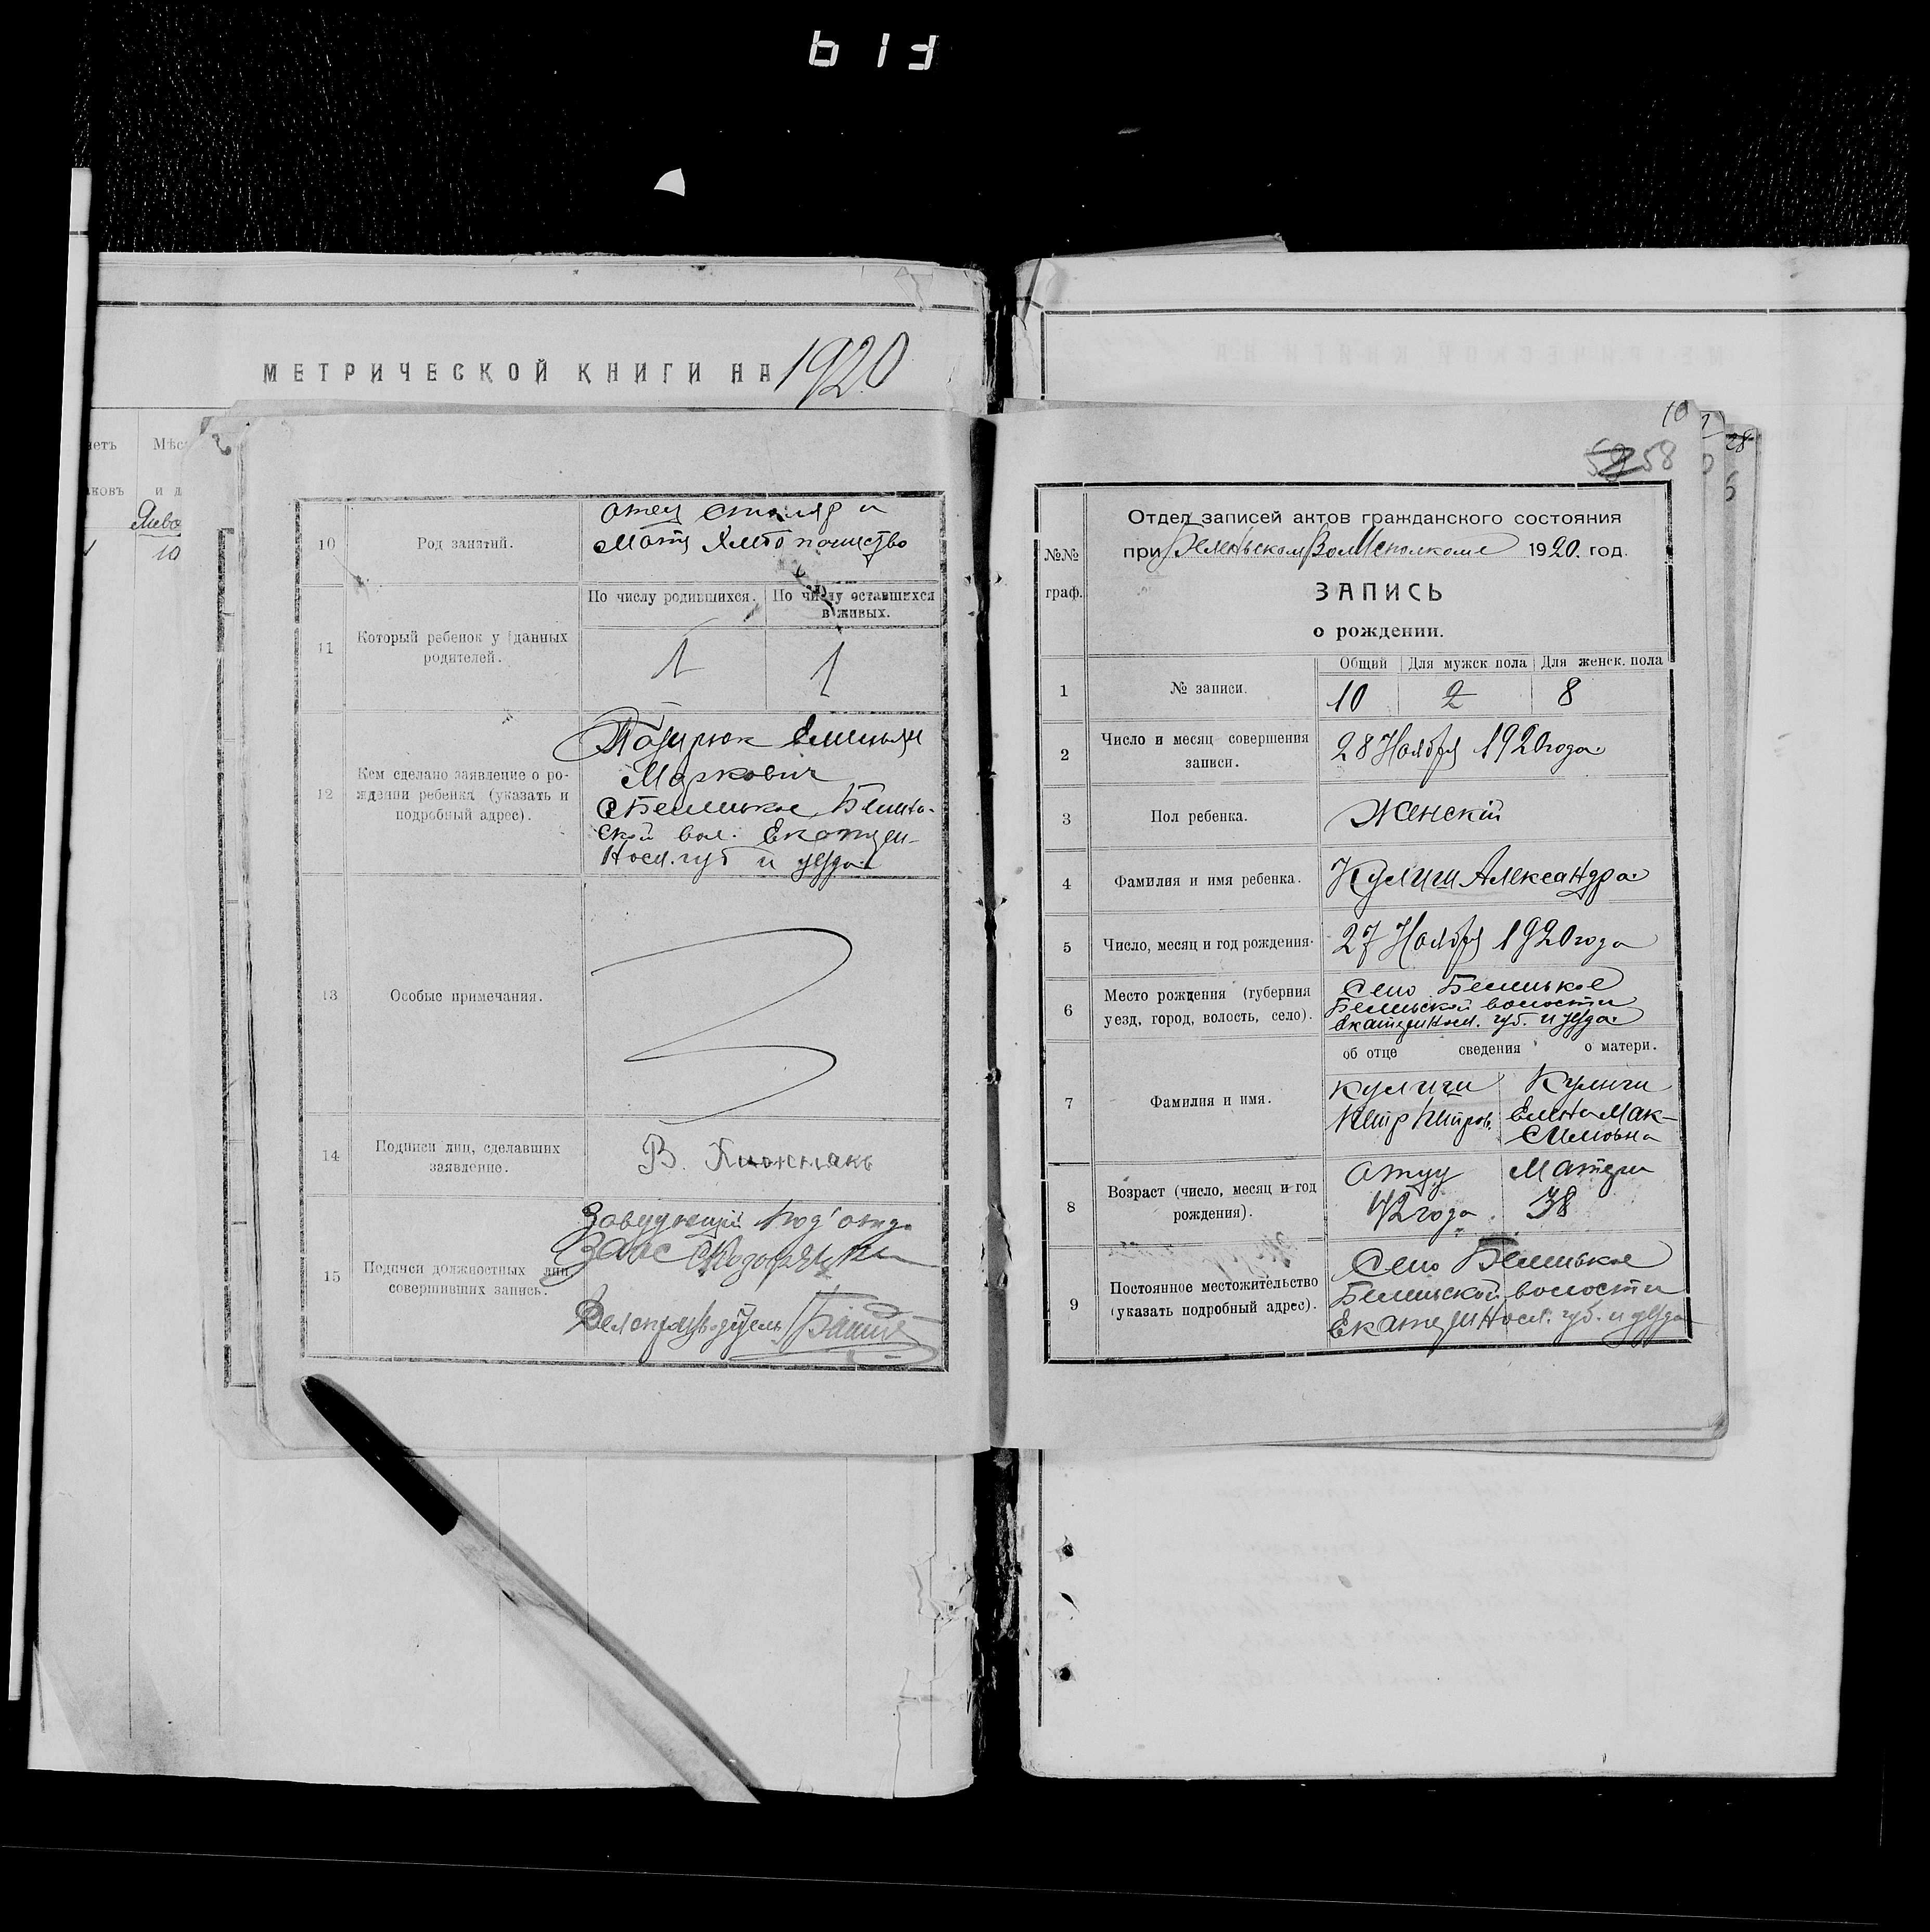 МЕТРИЧЕСКОЙ КНИГИ НА 1920
Мѣс
и д
10
10
Род занятий.
отец столяр и
Мать Хлебопашество
11
Который ребенок у данных
родителей.
По числу родившихся.
По числу оставшихся
в живых.
1
1
12
Кем сделано заявление о ро-
ждении ребенка (указать и
подробный адрес).
Маркович
ской вол. Екатери-
носл. губ и уезда
13
Особые примечания.
14
Подписи лиц, сделавших
заявление.
В.
15
Подписи должностных лиц,
совершивших запись.
Заведующий Под'отд.
Загс
Делопроизводитель
10
28
58
6
№№
граф.
Отдел записей актов гражданского состояния
при ВолИсполкоме 1920. год.
ЗАПИСЬ
о рождении.
1
№ записи.
Общий
Для мужск пола
Для женск. пола
10
2
8
2
Число и месяц совершения
записи.
28 Ноября 1920 года
3
Пол ребенка.
Женскій
4
Фамилия и имя ребенка.
Кулиш Александра
5
Число, месяц и год рождения.
27 Ноября 1920 года
6
Место рождения (губерния
уезд, город, волость, село).
Село
волости
Екатериносл. губ. и уезда
об отце сведения о матери.
7
Фамилия и имя.
Кулиш
Петр Петров.
Кулиш
Елена Мак-
симовна
8
Возраст (число, месяц и год
рождения).
отцу
42 года
Матери
38
9
Постоянное местожительство
(указать подробный адрес).
Село
волости
Екатериносл. губ. и уезда